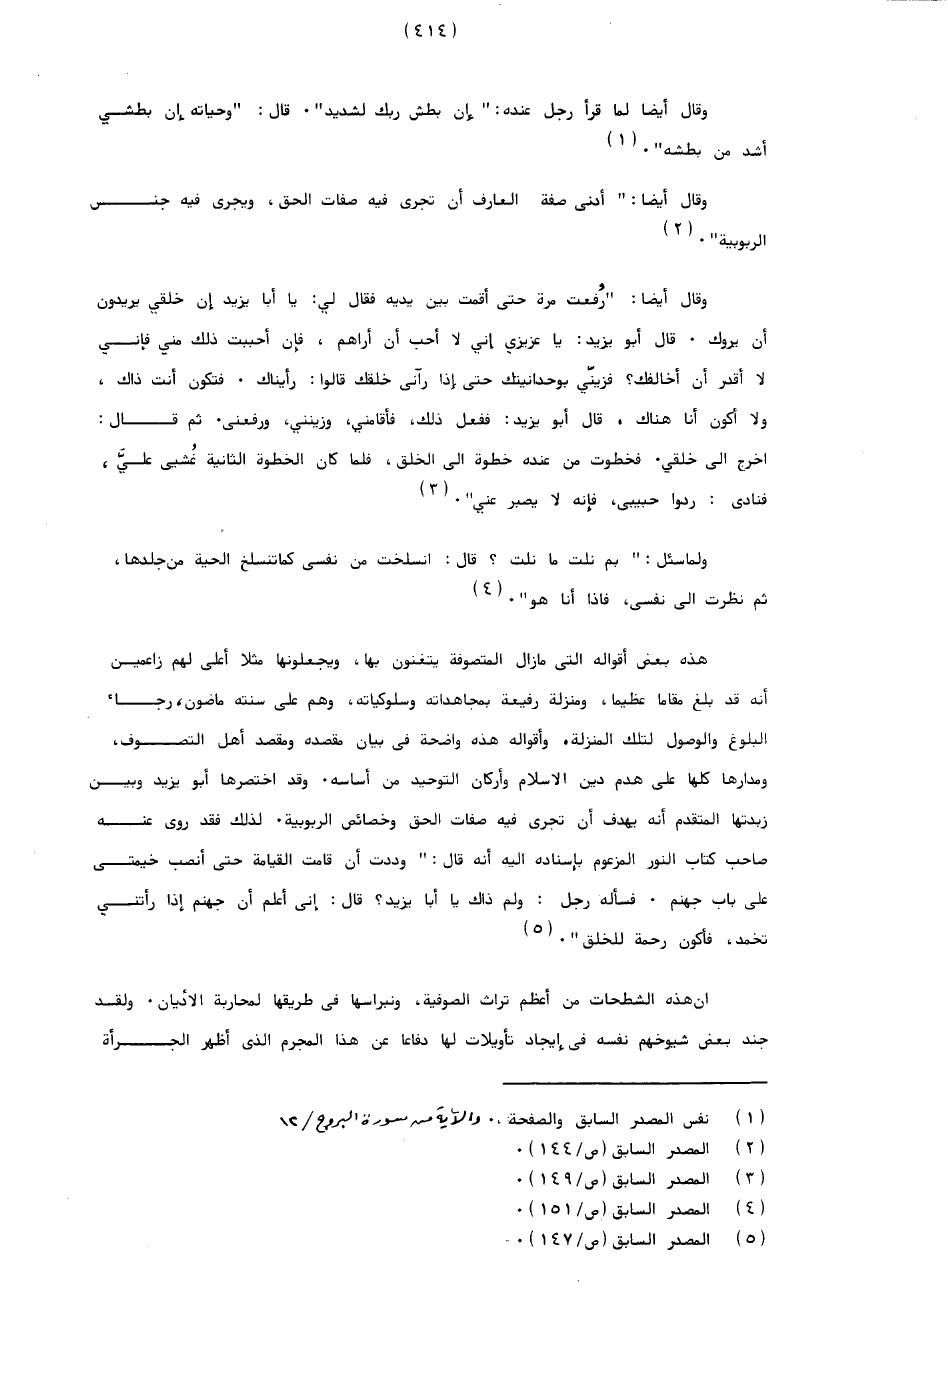 (٤١٤)
وقال أيضا لما قرأ رجل عنده: " إن بطش ربك لشديد"٠ قال : "وحياته إن بطشي
أشد من بطشه"٠ (١)
وقال أيضا : " أدنى صفة العارف أن تجرى فيه صفات الحق ، ويجرى فيه جنس
الربوبية"٠ (٢)
وقال أيضا : "رُفعت مرة حتى أقمت بين يديه فقال لي: يا أبا يزيد إن خلقي يريدون
أن يروك ٠ قال أبو يزيد: يا عزيزي إني لا أحب أن أراهم ، فإن أحببت ذلك مني فإني
لا أقدر أن أخالفك؟ فزينّي بوحدانيتك حتى إذا رآنى خلقك قالوا : رأيناك ٠ فتكون أنت ذاك ،
ولا أكون أنا هناك ٠ قال أبو يزيد : ففعل ذلك، فأقامني، وزينني، ورفعنى٠ ثم قال :
اخرج الى خلقي٠ فخطوت من عنده خطوة الى الخلق ، فلما كان الخطوة الثانية غُشيى عليّ ،
فنادى : ردوا حبيبى، فإنه لا يصبر عني"٠ (٣)
ولماسئل : " بم نلت ما نلت ؟ قال : انسلخت من نفسى كماتنسلخ الحية من جلدها ،
ثم نظرت الى نفسى، فاذا أنا هو"٠ (٤)
هذه بعض أقواله التى مازال المتصوفة يتغنون بها، ويجعلونها مثلا أعلى لهم زاعمين
أنه قد بلغ مقاما عظيما ، ومنزلة رفيعة بمجاهداته وسلوكياته، وهم على سنته ماضون، رجاء
البلوغ والوصول لتلك المنزلة٠ وأقواله هذه واضحة فى بيان مقصده ومقصد أهل التصوف،
ومدارها كلها على هدم دين الاسلام وأركان التوحيد من أساسه٠ وقد اختصرها أبو يزيد وبين
زبدتها المتقدم أنه يهدف أن تجرى فيه صفات الحق وخصائص الربوبية٠ لذلك فقد روى عنه
صاحب كتاب النور المزعوم بإسناده اليه أنه قال : " وددت أن قامت القيامة حتى أنصب خيمتى
على باب جهنم ٠ فسأله رجل : ولم ذاك يا أبا يزيد؟ قال : إنى أعلم أن جهنم إذا رأتني
تخمد ، فأكون رحمة للخلق"٠ (٥)
ان هذه الشطحات من أعظم تراث الصوفية، ونبراسها فى طريقها لمحاربة الأديان ٠ ولقد
جند بعض شيوخهم نفسه فى إيجاد تأويلات لها دفاعا عن هذا المجرم الذى أظهر الجرأة
(١) نفس المصدر السابق والصفحة ٠، والآية من سورة البروج /١٢
(٢) المصدر السابق (ص/١٤٤) ٠
(٣) المصدر السابق (ص/١٤٩) ٠
(٤) المصدر السابق (ص/١٥١) ٠
(٥) المصدر السابق (ص/١٤٧) ٠